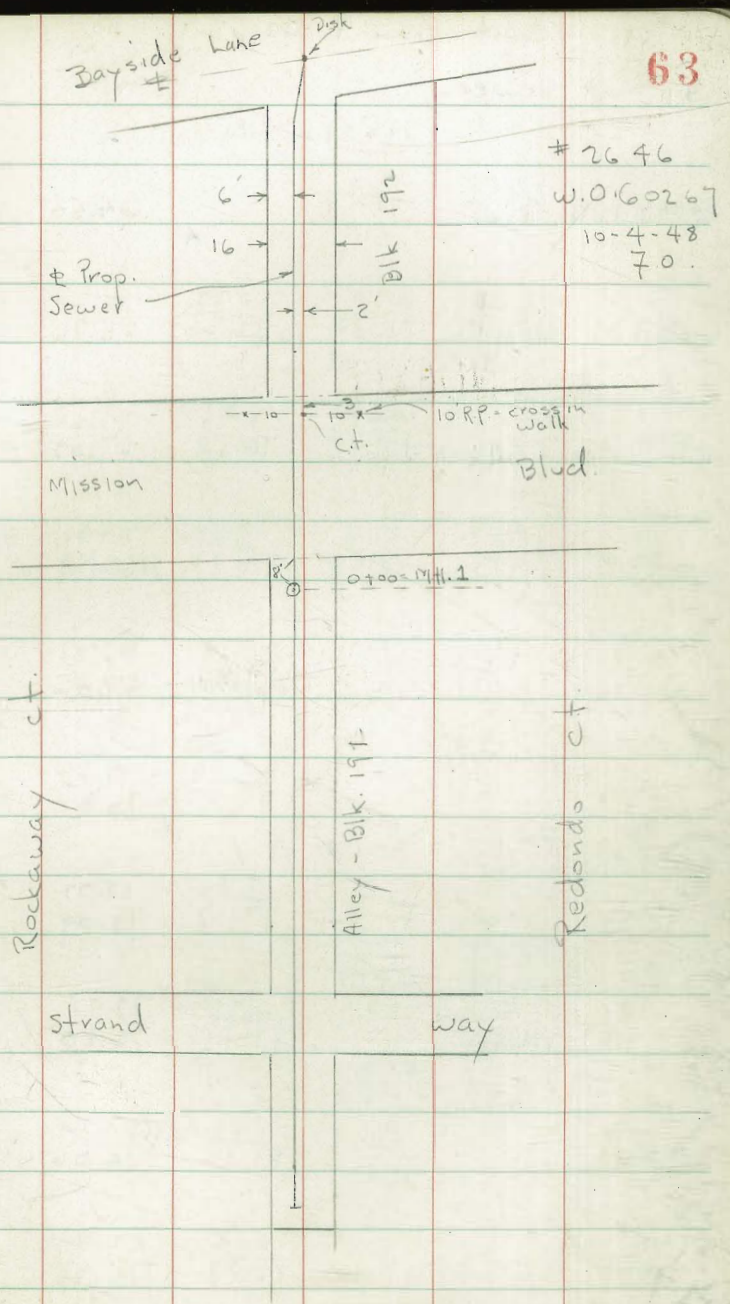 Disk
Bayside Lane
℄
63
# 2646
W.O. 60267
10-4-48
7.0.
6'
16
Blk 192
℄ Prop.
Sewer
2'
3
10
10
10' R.P. = cross in
walk
c.t.
Mission
Blvd.
8'
0+00 = M.H. 1
Rockaway ct.
Alley - Blk. 191
Redondo ct.
Strand way